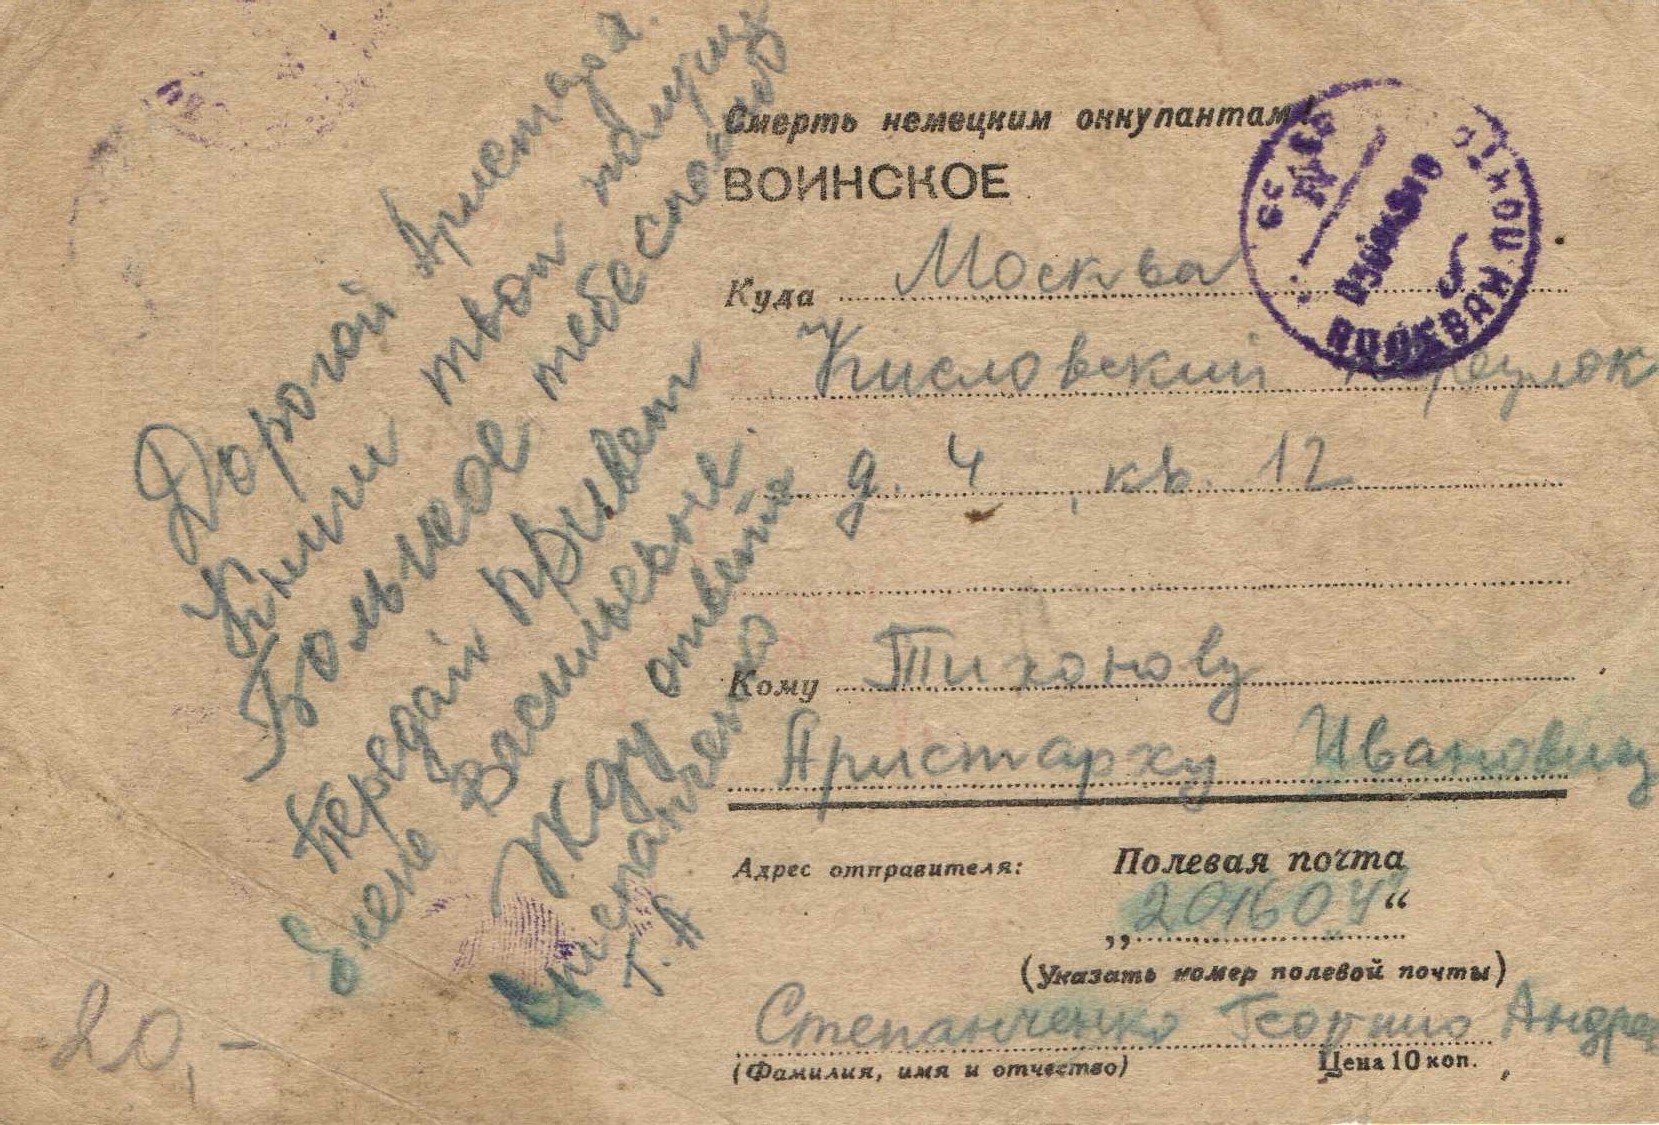 Дорогой Аристарх.
Книги твои получил
Большое тебе спасибо
Передай привет
Елене Васильевне.
Жду ответа
Степанченко
Г. А
20,-
Смерть немецким оккупантам!
ВОИНСКОЕ
Куда Москва
Кисловский переулок
д. 4, кв. 12
Кому Тихонову
Аристарху Ивановичу
Адрес отправителя: Полевая почта
„ “
(Указать номер полевой почты)
Степанченко Андрее
(Фамилия, имя и отчество) Цена 10 коп.